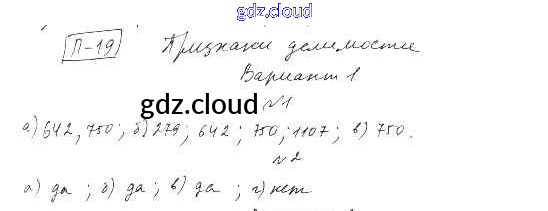 gdz.cloud
П-19 Признаки делимости
Вариант 1
gdz.cloud
№1
а) 642, 750; б) 279; 642; 750; 1107; в) 750.
№2
а) да; б) да; в) да; г) нет